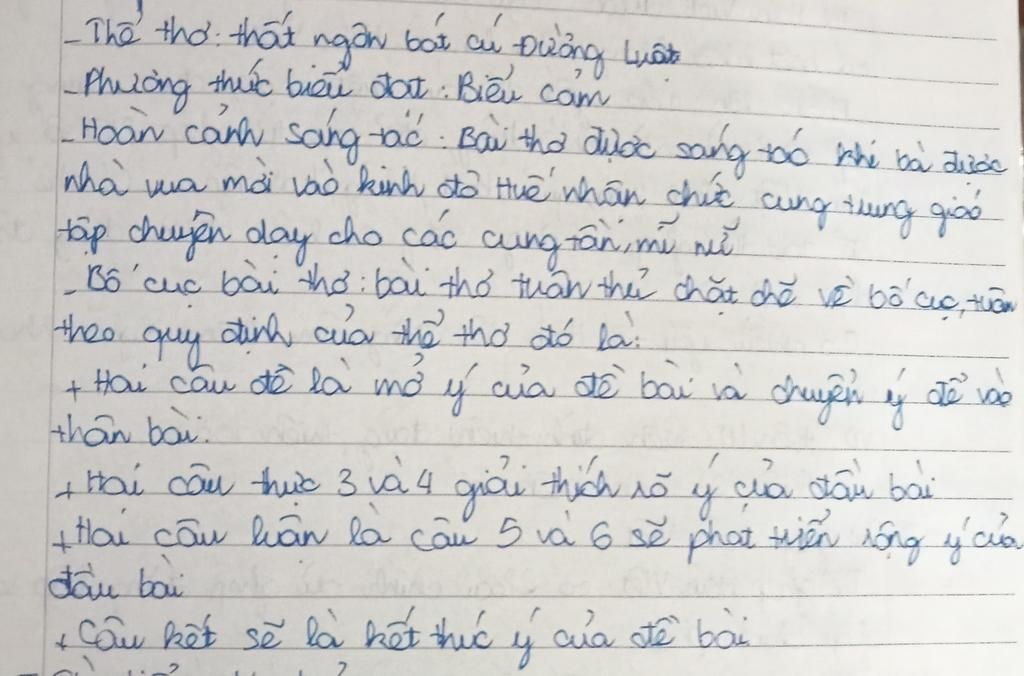 - Thể thơ: thất ngôn bát cú Đường Luật
- Phương thức biểu đạt: Biểu cảm
- Hoàn cảnh sáng tác: Bài thơ được sáng tác khi bà được
nhà vua mời vào kinh đô Huế nhận chức cung trung giáo
tập chuyên dạy cho các cung tần, mĩ nữ
- Bố cục bài thơ: bài thơ tuân thủ chặt chẽ về bố cục, tuân
theo quy định của thể thơ đó là:
+ Hai câu đề là mở ý của đề bài và chuyển ý để vào
thân bài.
+ Hai câu thực 3 và 4 giải thích rõ ý của đầu bài
+ Hai câu luận là câu 5 và 6 sẽ phát triển rộng ý của
đầu bài
+ Câu kết sẽ là kết thúc ý của đề bài